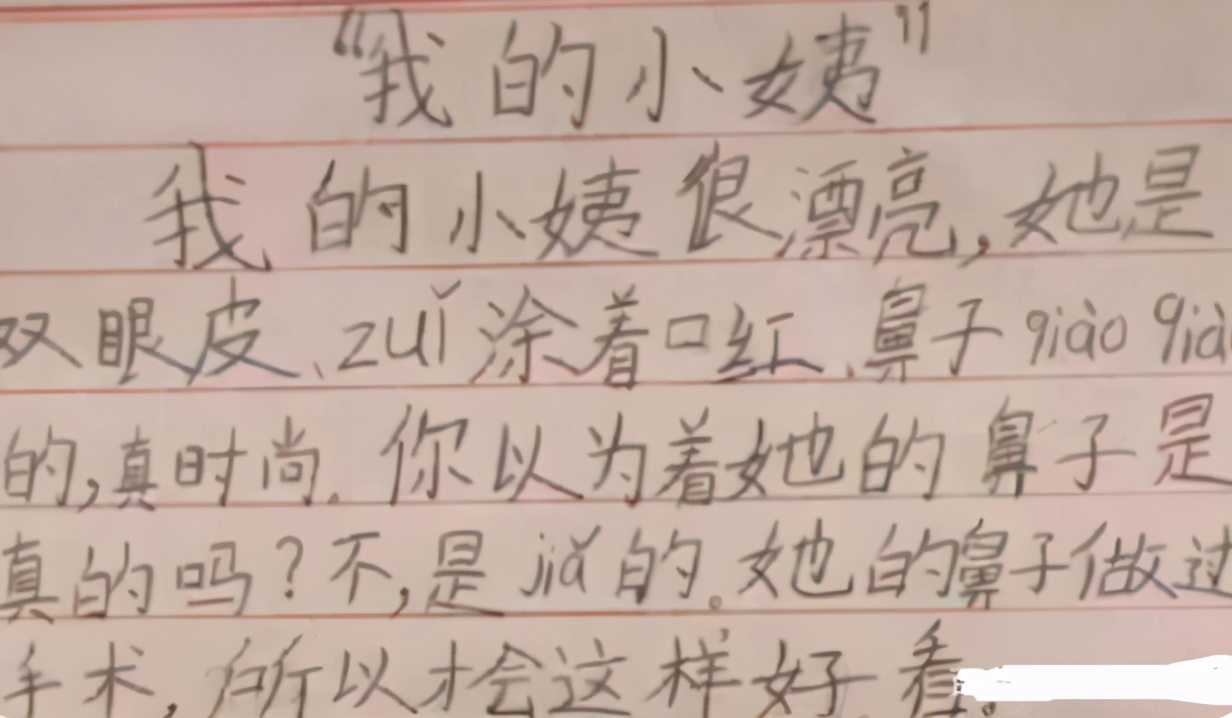 “我的小姨”
我的小姨很漂亮,她是
双眼皮、zuǐ涂着口红、鼻子qiào qià
的,真时尚。你以为着她的鼻子是
真的吗?不,是jiǎ的。她的鼻子做过
手术,所以才会这样好看。